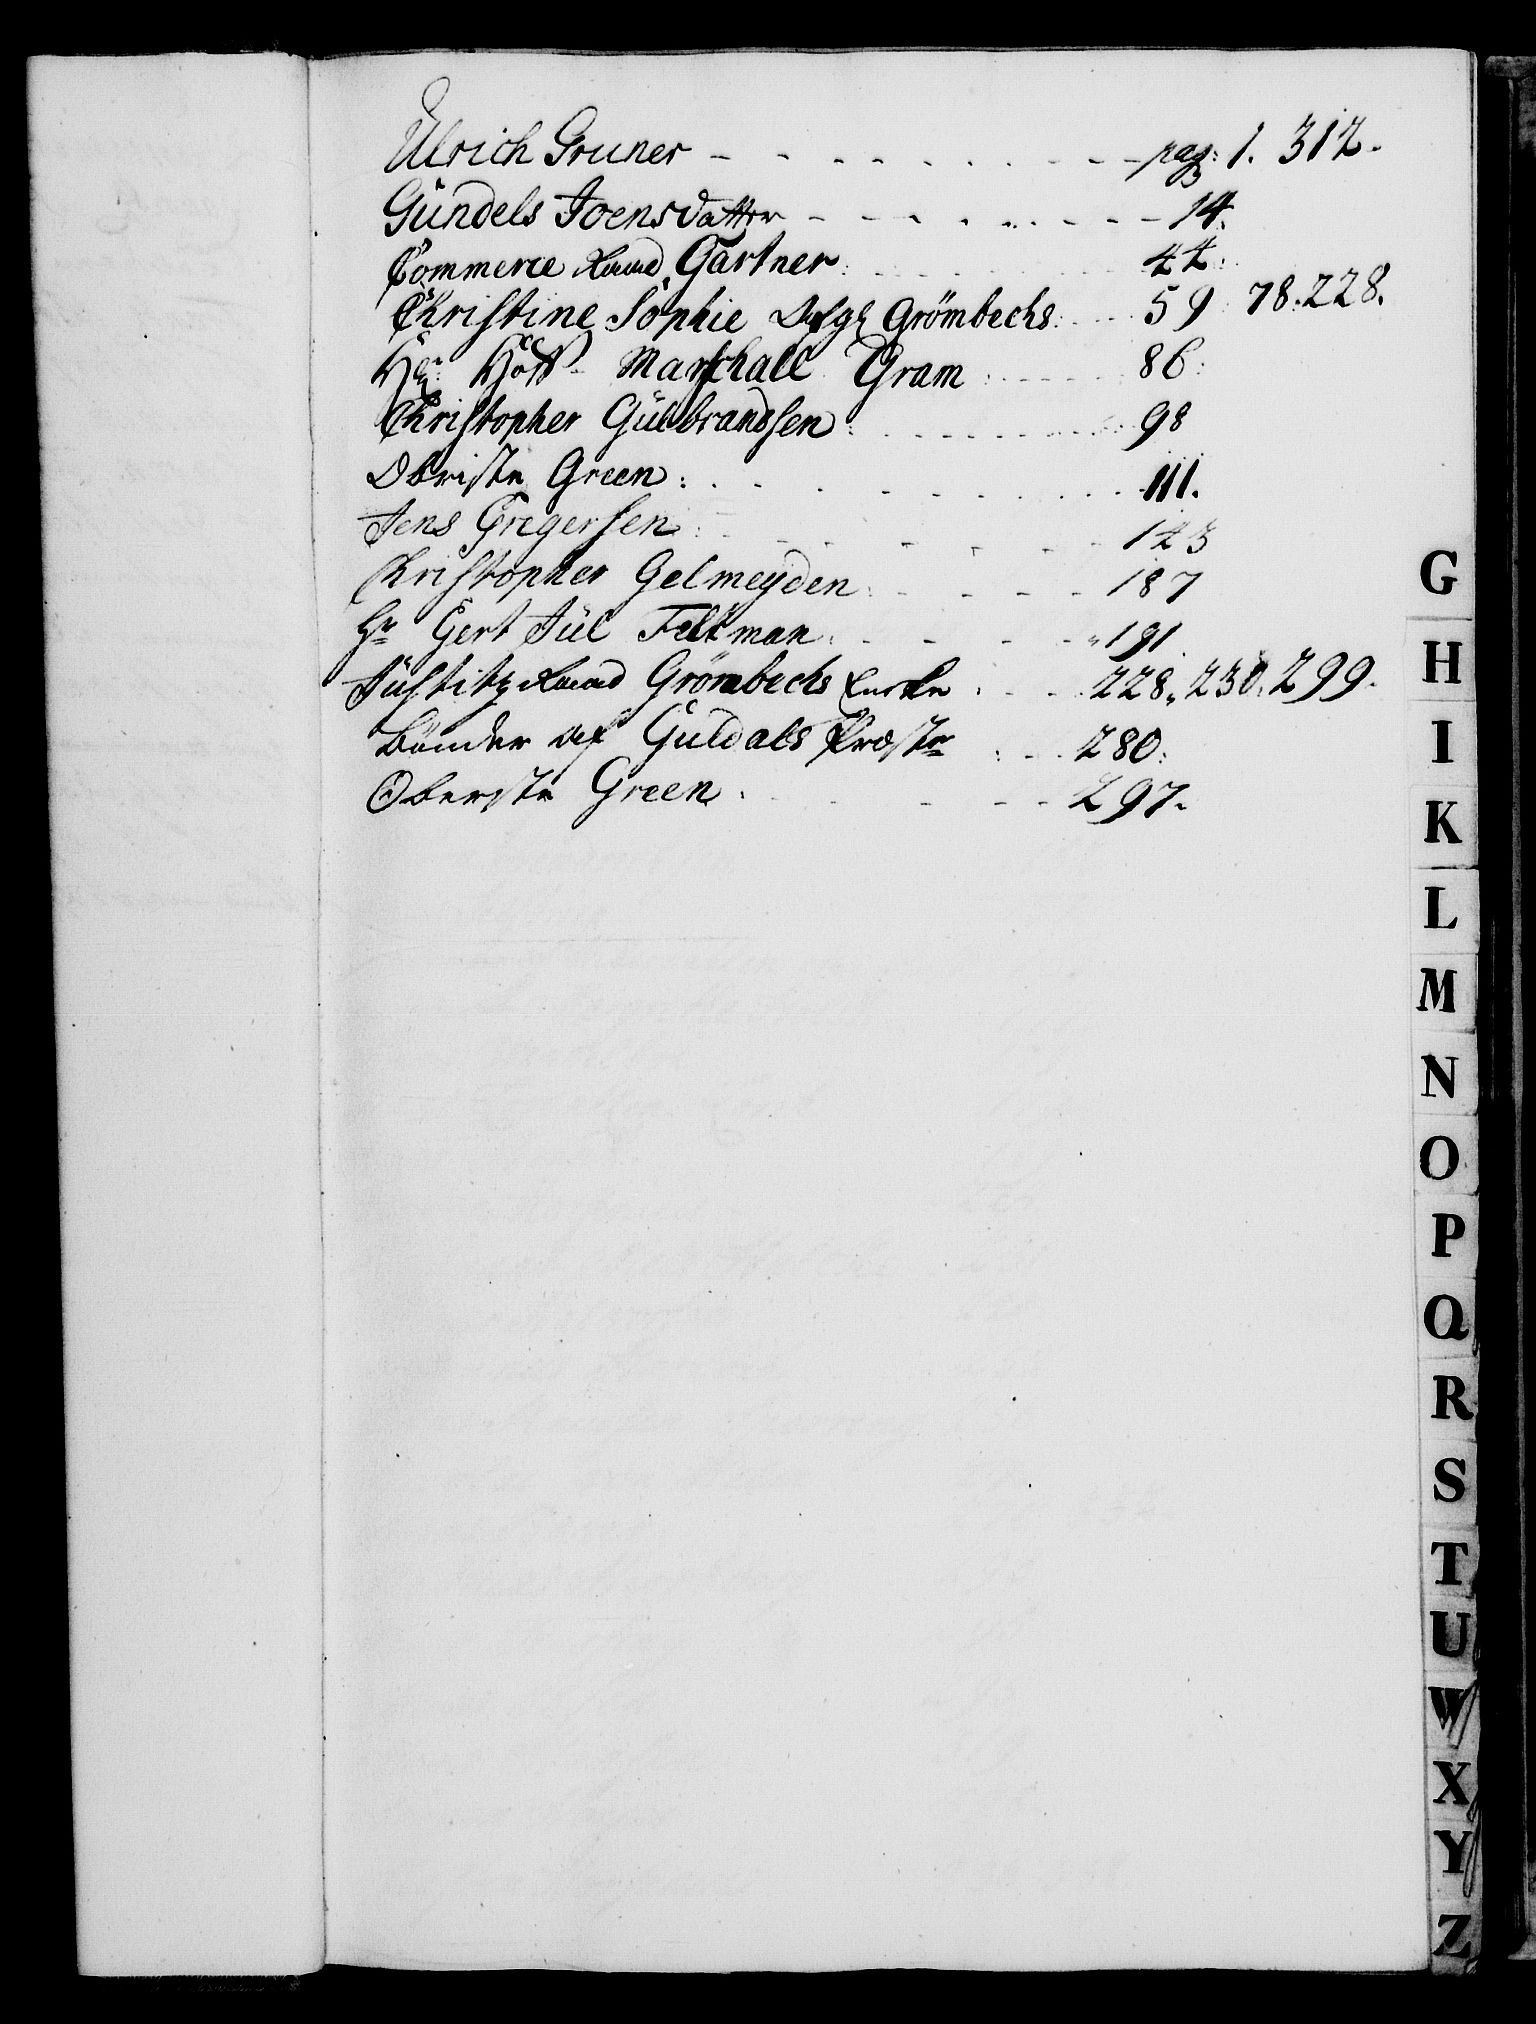 Ulrich Gruner - - - - - - - - - - pag: 1. 312.
Gündels Joensdatter - - - - - - - - 14.
Commerce Raad Gartner: - - - - - 42:
Christine Sophie Grömbechs: - - - 59 78. 228.
Hr: Hoff Marschall Gram : - - - - 86:
Christopher Gülbrandsen : - - - - - 98
Obriste Green : - - - - - - - - 111.
Jens Gregersen : - - - - - - - 123
Christopher Gelmeyden : - - - - 187
Hr Gert Jül Feltman : - - - - " 191
Jüstitz Raad Grömbechs Encke : - - - 228, 230. 299.
Bönder af Guldals Præstr : - - 280:
Oberste Green : - - - - - 297.
G
H
I
K
L
M
N
O
P
Q
R
S
T
U
W
X
Y
Z